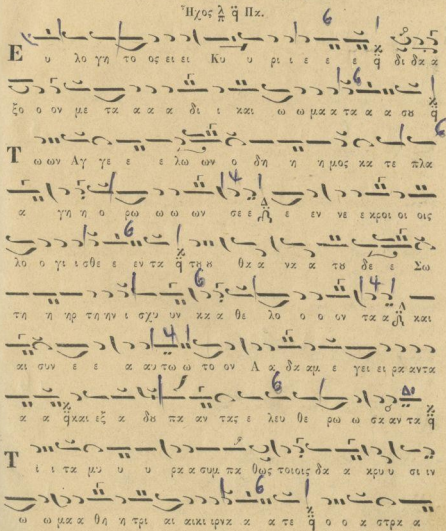 Ἦχος λ π q Πα.
6
Ε υ λο γη το ος ει ει Κυ υ ρι ε ε ε q δι δα α
6
ξο ο ον με τα α α α δι ι και ω ω μα κα τα α α σου q
6
Τ ω ων Αγ γε ε ε λω ων ο δη η η μος κα τε πλα
4
α γη η ο ρω ω ω ων σε ε Δ ε εν νε ε κροι οι οις
6
λο ο γι ι σθε ε εν τα q του θα α να α του δε ε Σω
6 4
τη η ηρ την ην ι σχυ υν κα α θε λο ο ο ον τα α Δ και
4
αι συν ε ε α αυ τω ω το ον Α α δα αμ ε γει ει ρα αν τα
6
α α q και εξ α δου πα αν τας ε λευ θε ρω ω σα αν τα q
Τ ι ι τα μυ υ υ ρα α συμ πα θως τοι οις δα α κρυ υ σι ιν
6
ω ω μα α θη η τρι αι αι κι ιρ να α α α τε q ο ο α στρα α